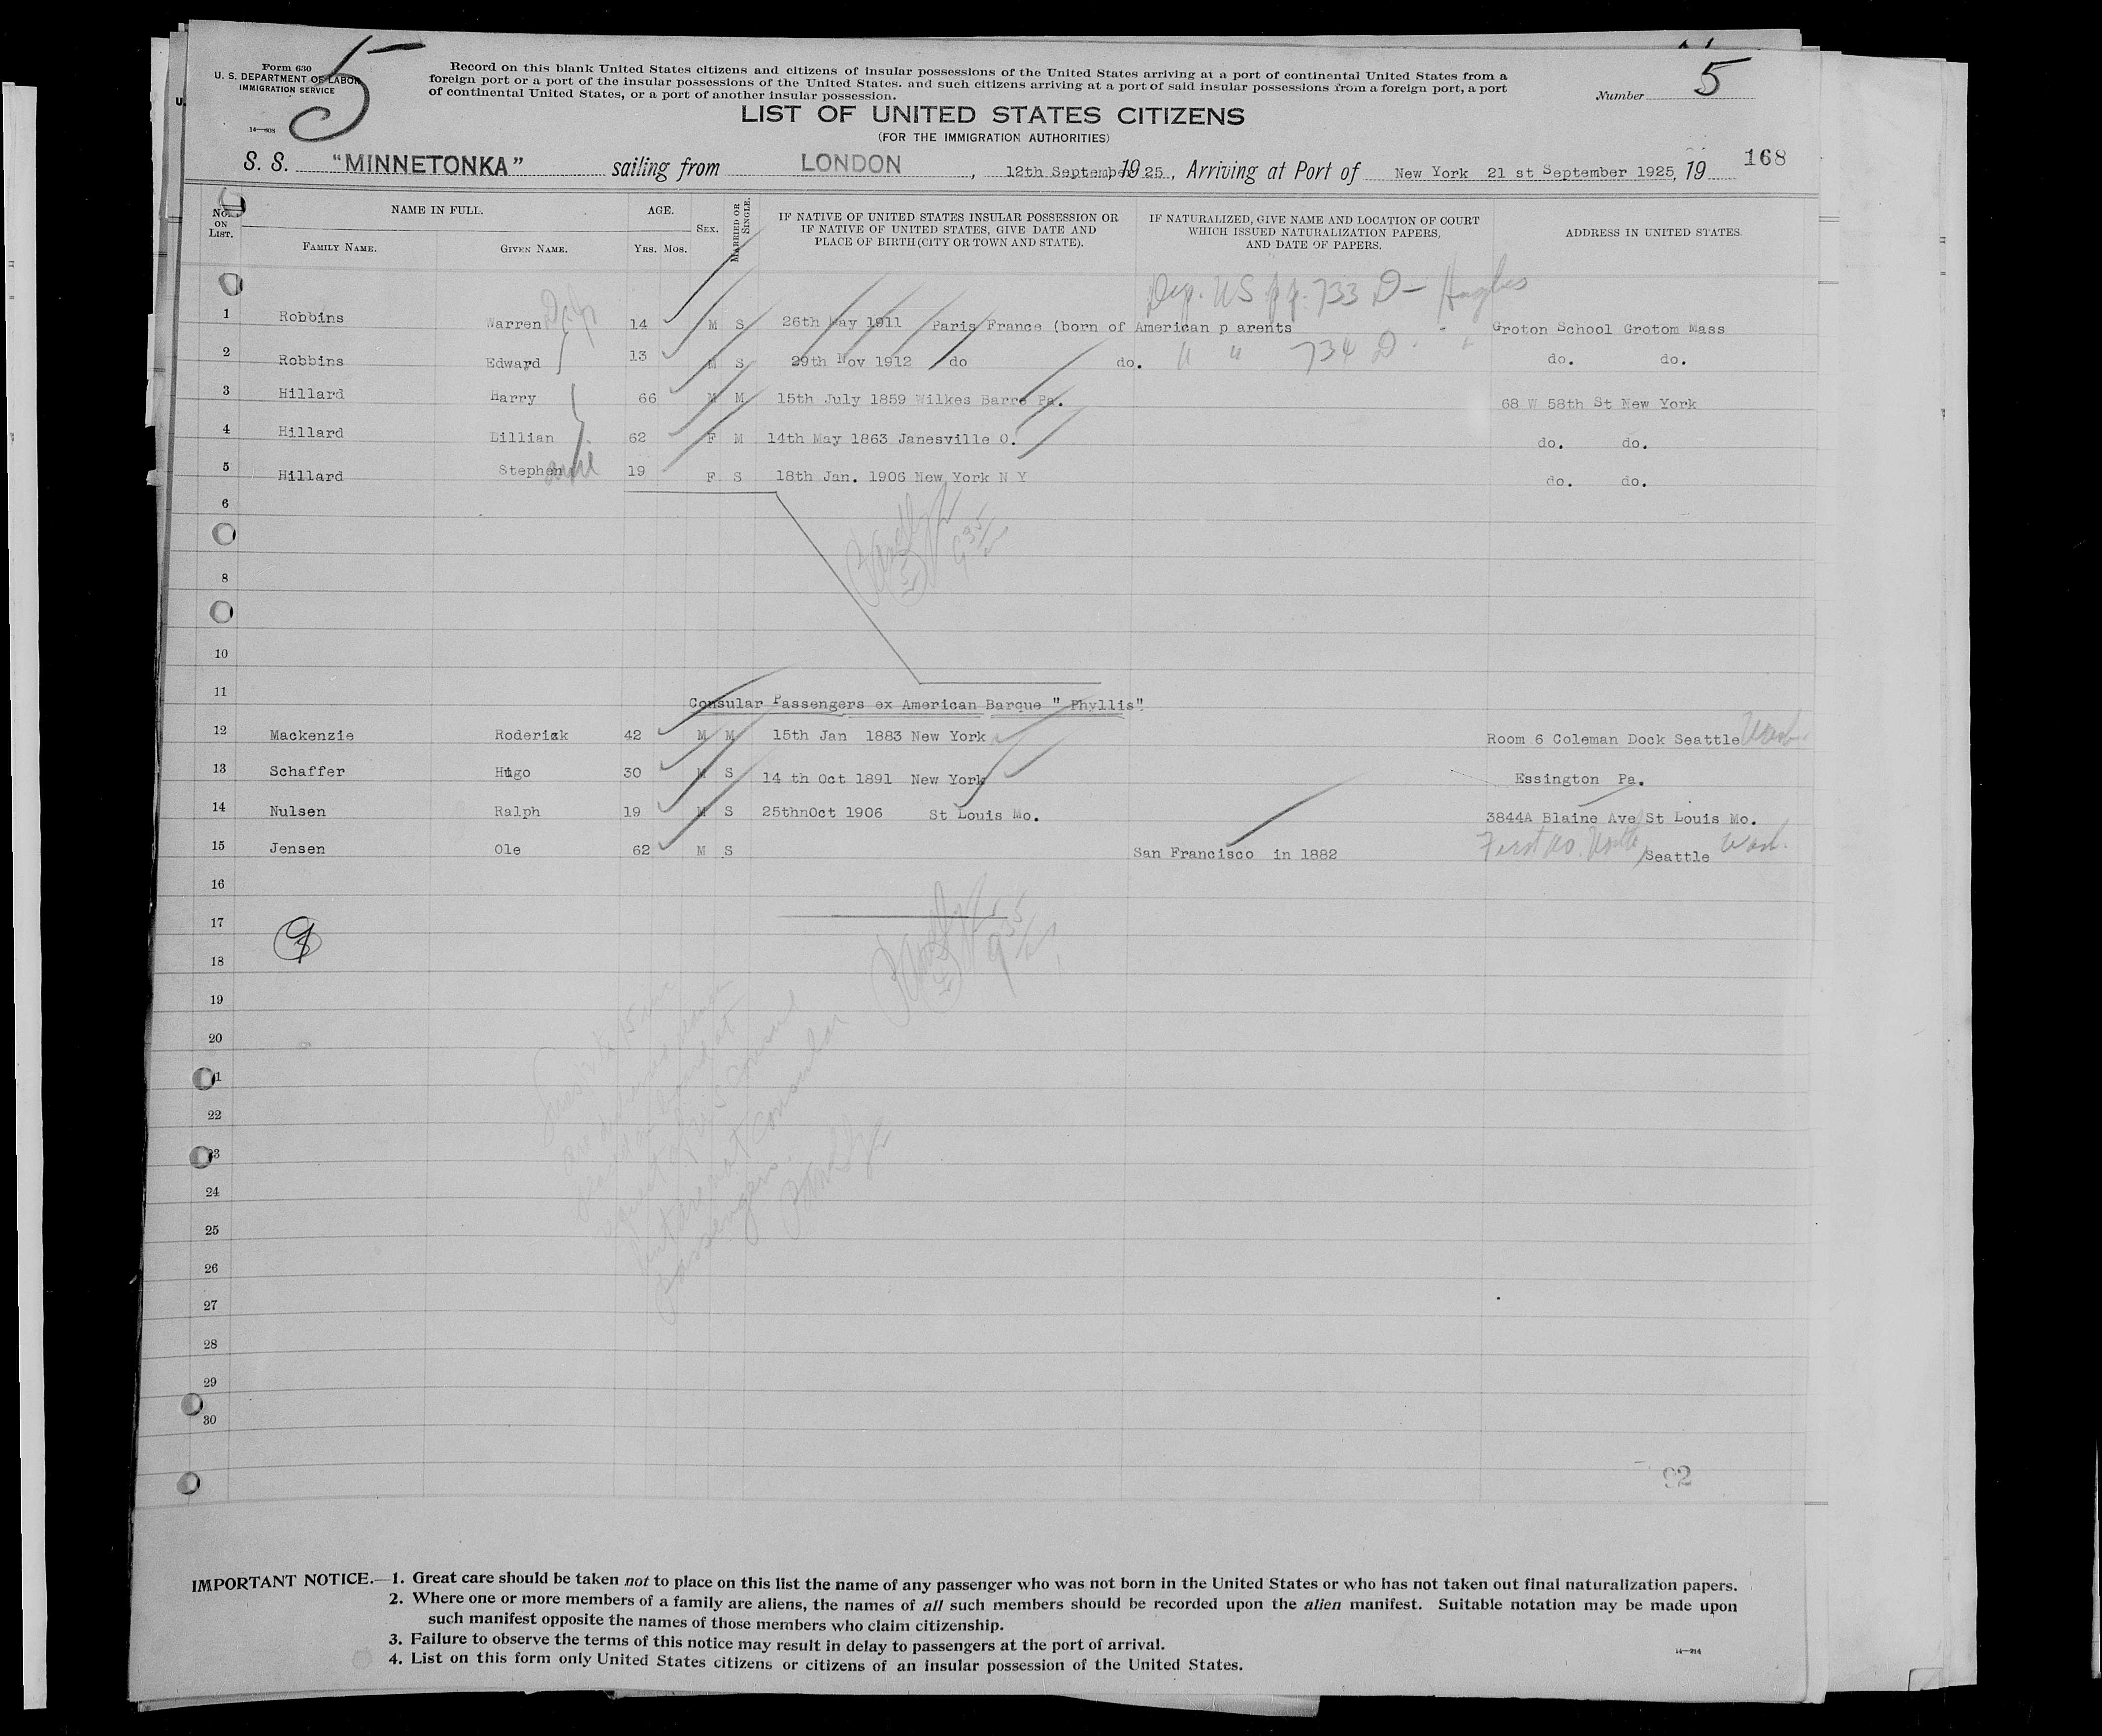 5
Form 630
U. S. DEPARTMENT OF LABOR
IMMIGRATION SERVICE
Record on this blank United States citizens and citizens of insular possessions of the United States arriving at a port of continental United States from a
foreign port or a port of the insular possessions of the United States. and such citizens arriving at a port of said insular possessions from a foreign port, a port
of continental United States, or a port of another insular possession.
Number 5
LIST OF UNITED STATES CITIZENS
(FOR THE IMMIGRATION AUTHORITIES)
S. S. "MINNETONKA" sailing from LONDON, 12th September 1925, Arriving at Port of New York 21 st September 1925, 19 168
No. ON LIST. NAME IN FULL. AGE. SEX. MARRIED OR SINGLE. IF NATIVE OF UNITED STATES INSULAR POSSESSION OR IF NATIVE OF UNITED STATES, GIVE DATE AND PLACE OF BIRTH (CITY OR TOWN AND STATE). IF NATURALIZED, GIVE NAME AND LOCATION OF COURT WHICH ISSUED NATURALIZATION PAPERS, AND DATE OF PAPERS. ADDRESS IN UNITED STATES.
FAMILY NAME. GIVEN NAME. YRS. MOS.
Dip. US pp. 733 D - Hughes
1 Robbins Warren 14 M S 26th May 1911 Paris France (born of American p arents Groton School Grotom Mass
2 Robbins Edward 13 M S 29th Nov 1912 do do. " " 734 D " " do. do.
3 Hillard Harry 66 M M 15th July 1859 Wilkes Barre Pa. 68 W 58th St New York
4 Hillard Lillian 62 F M 14th May 1863 Janesville O. do. do.
5 Hillard Stephen 19 F S 18th Jan. 1906 New York N Y do. do.
6
8
10
11 Consular Passengers ex American Barque " Phyllis"
12 Mackenzie Roderick 42 M M 15th Jan 1883 New York Room 6 Coleman Dock Seattle Wash.
13 Schaffer Hugo 30 M S 14 th Oct 1891 New York Essington Pa.
14 Nulsen Ralph 19 M S 25thnOct 1906 St Louis Mo. 3844A Blaine Ave St Louis Mo.
15 Jensen Ole 62 M S San Francisco in 1882 First Seattle Wash.
16
17
9
18
19
20
21
22
23
24
25
26
27
28
29
30
92
IMPORTANT NOTICE.—1. Great care should be taken not to place on this list the name of any passenger who was not born in the United States or who has not taken out final naturalization papers.
2. Where one or more members of a family are aliens, the names of all such members should be recorded upon the alien manifest. Suitable notation may be made upon
such manifest opposite the names of those members who claim citizenship.
3. Failure to observe the terms of this notice may result in delay to passengers at the port of arrival.
4. List on this form only United States citizens or citizens of an insular possession of the United States.